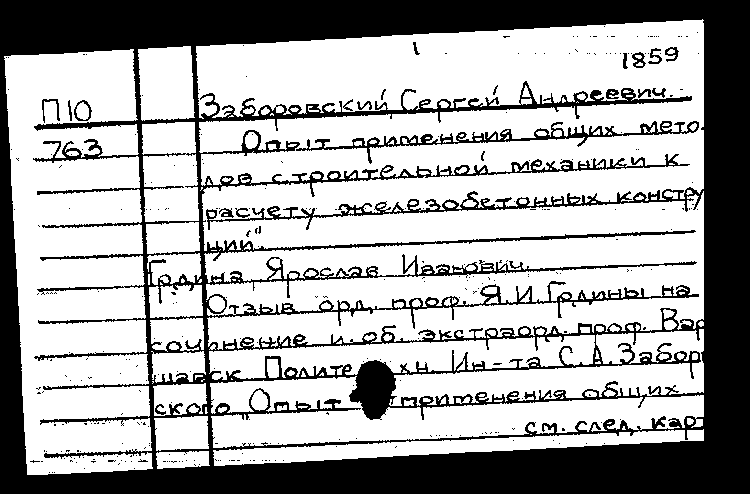 1859
П10 Заборовский, Сергей Андреевич.
763 Опыт применения общих мето-
дов строительной механики к
расчету железобетонных констру
ций".
Грдина, Ярослав Иванович.
Отзыв орд. проф. Я.И.Грдины на
сочинение и.об. экстраорд. проф. Вар
шавск Полите хн. Ин-та С.А.Забор
ского „Опыт применения общих
см. след. карт